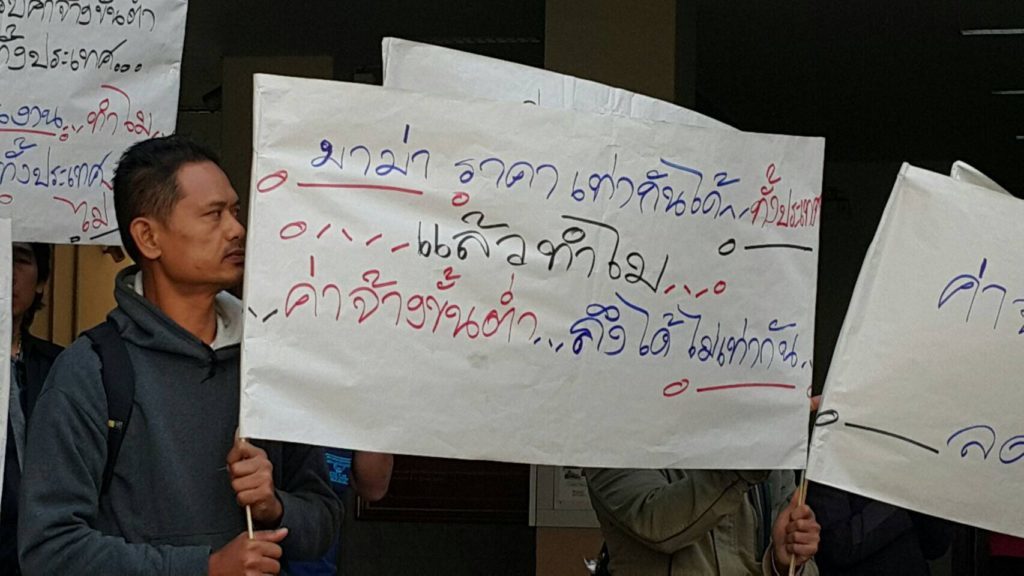 ค่าจ้างขั้นต่ำ
ทั้งประเทศ...
งาน... ทำไม...
ทั้งประเทศ
ไม่
มาม่า ราคา เท่ากันได้... ทั้งประเทศ
....แล้วทำไม....
...ค่าจ้างขั้นต่ำ...ถึงได้ ไม่เท่ากัน..
ค่า
ลด